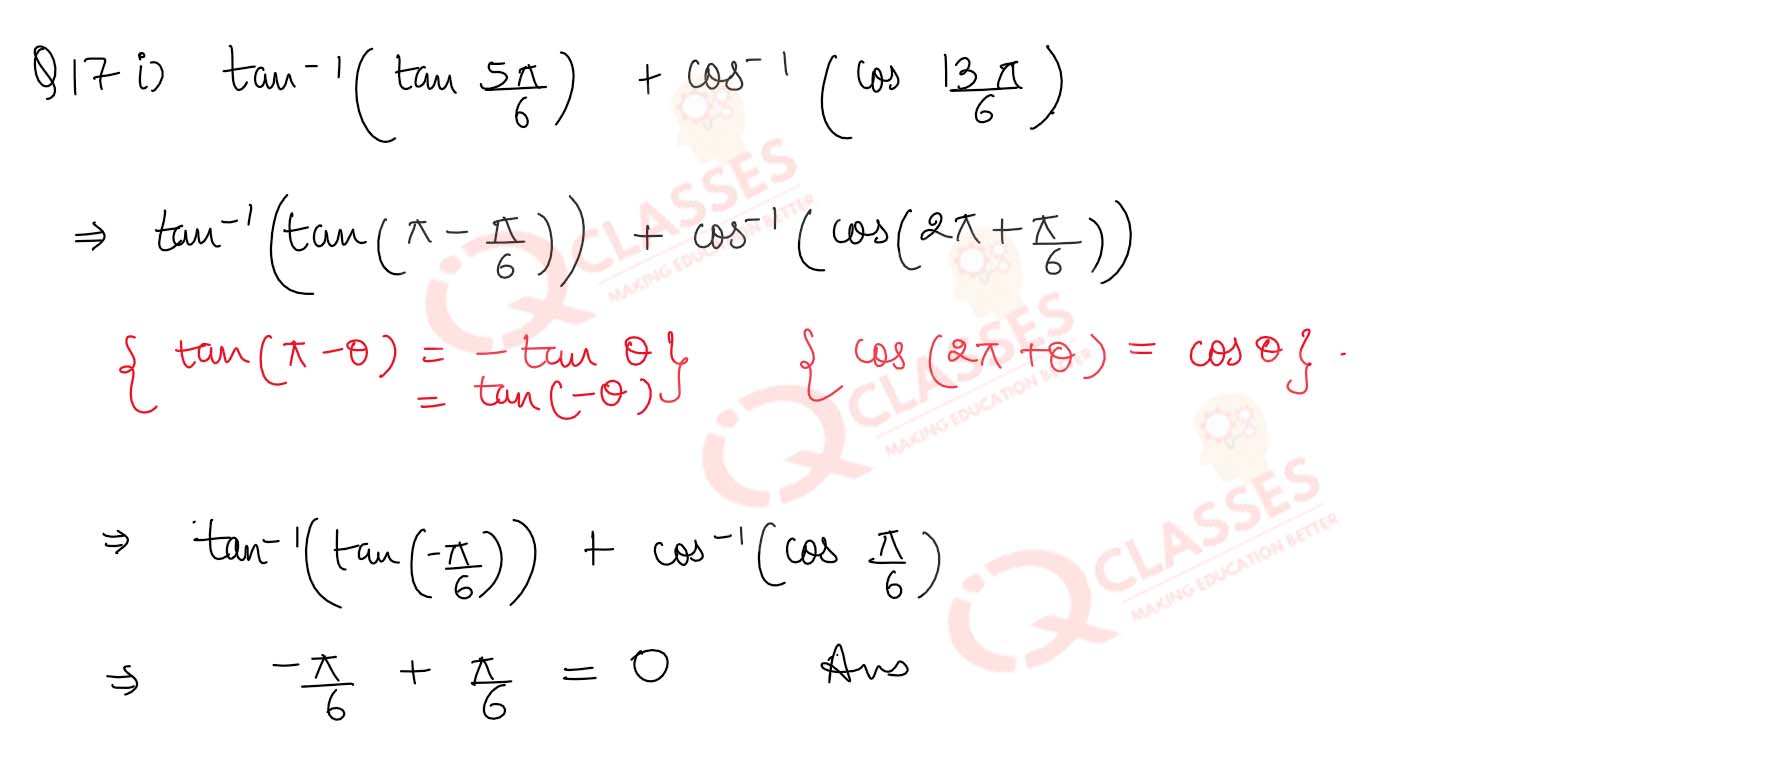 Q17 i) tan⁻¹(tan 5π/6) + cos⁻¹(cos 13π/6)
⇒ tan⁻¹(tan(π - π/6)) + cos⁻¹(cos(2π + π/6))
{ tan(π - θ) = - tan θ } { cos(2π + θ) = cos θ } .
= tan(-θ)
⇒ tan⁻¹(tan(-π/6)) + cos⁻¹(cos π/6)
⇒ -π/6 + π/6 = 0 Ans
iQ CLASSES
MAKING EDUCATION BETTER
iQ CLASSES
MAKING EDUCATION BETTER
iQ CLASSES
MAKING EDUCATION BETTER